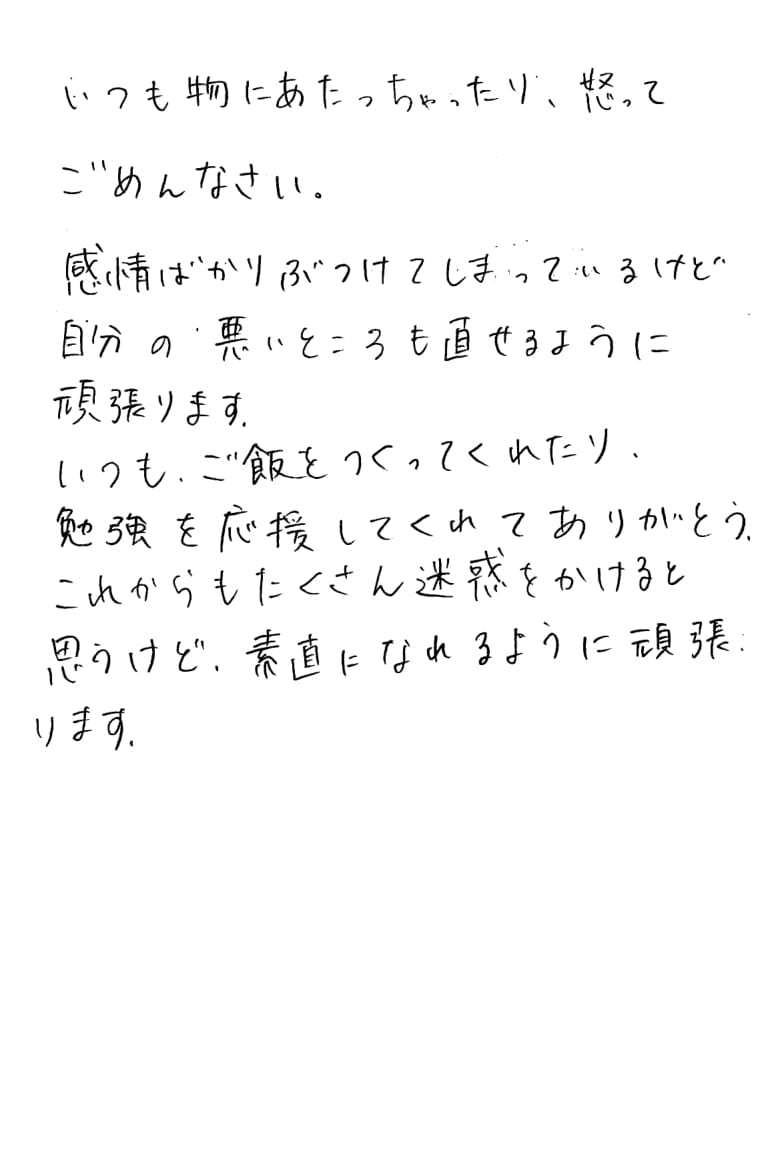 いつも物にあたっちゃったり、怒って
ごめんなさい。
感情ばかりぶつけてしまっているけど
自分の悪いところも直せるように
頑張ります.
いつも、ご飯をつくってくれたり、
勉強を応援してくれてありがとう.
これからもたくさん迷惑をかけると
思うけど、素直になれるように頑張
ります.